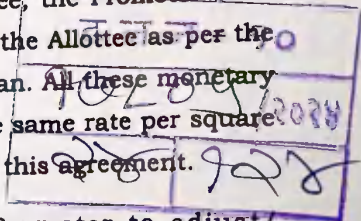 the
the Allottee as per the
an. All these monetary
e same rate per square /२०२४
this agreement. १२४
to adjust/